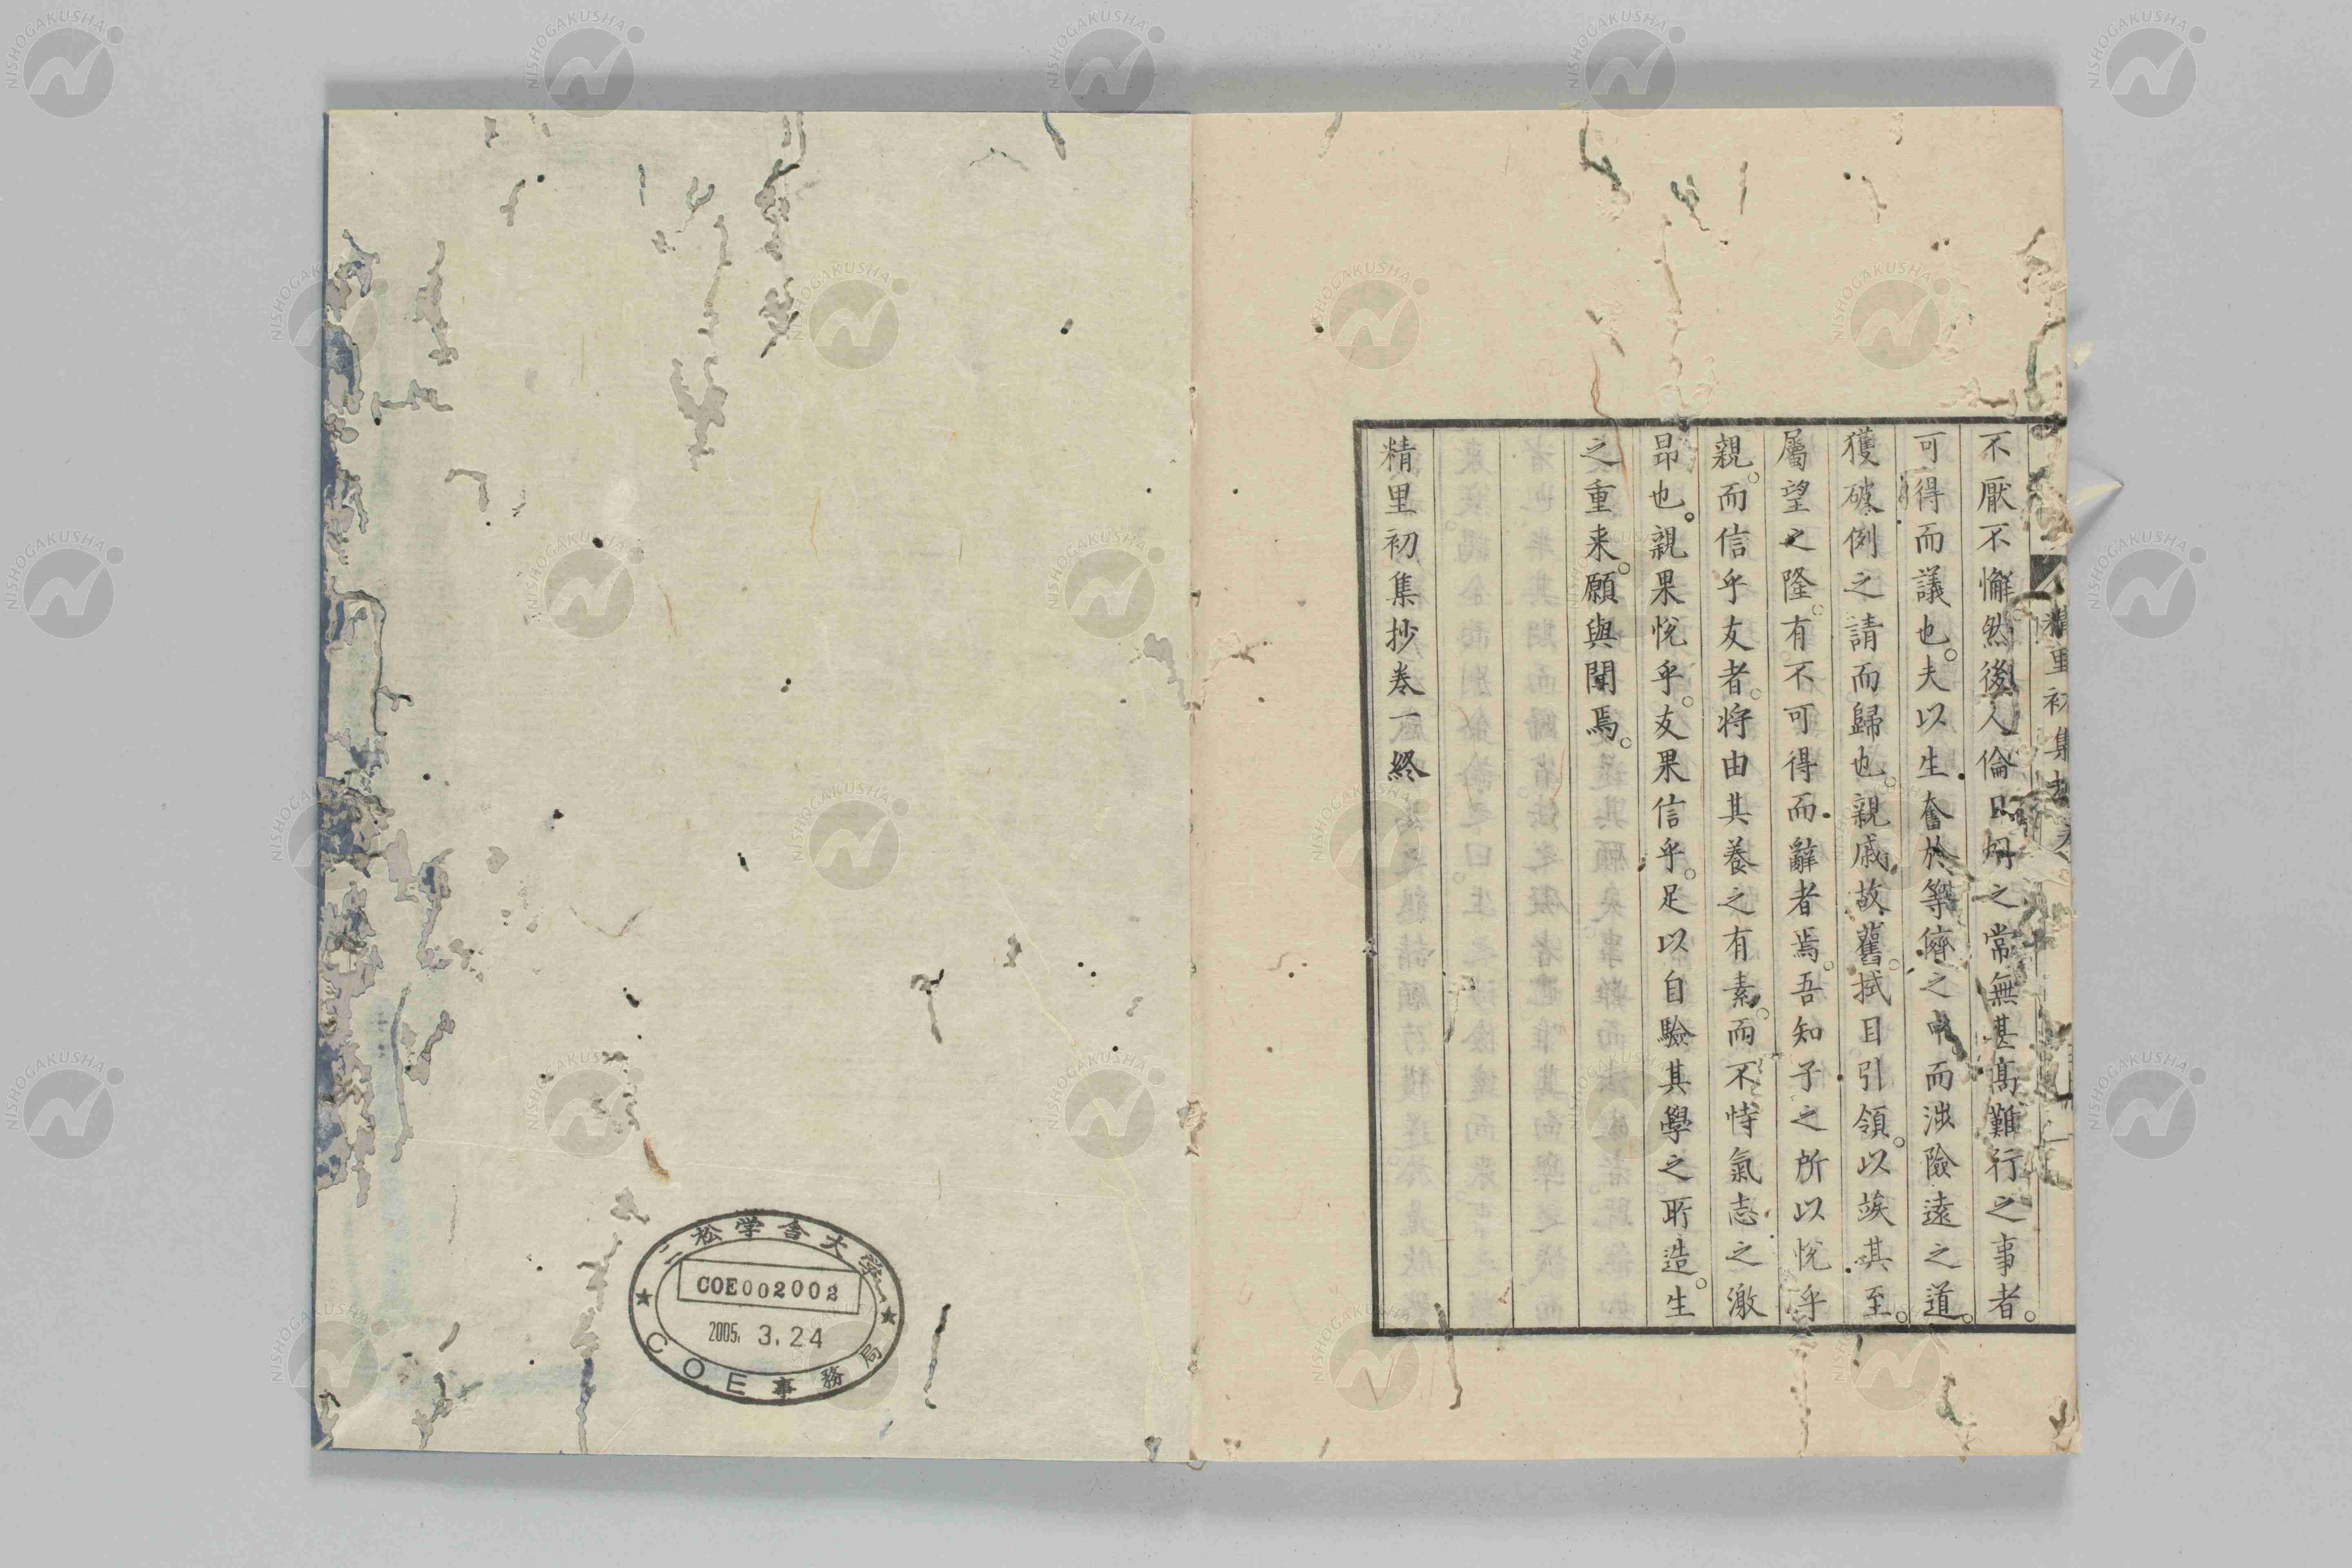 不厭不懈然後人倫日用之常無甚高難行之事者。
可得而議也。夫以生奮於等儕之中而涉險遠之道。
獲破例之請而歸也。親戚故舊。拭目引領。以竢其至。
屬望之隆。有不可得而辭者焉。吾知子之所以悅乎
親。而信乎友者。將由其養之有素。而不恃氣志之激
昂也。親果悅乎。友果信乎。足以自驗其學之所造。生
之重来。願與聞焉。
精里初集抄卷一終
精里初集抄卷一
二松学舎大学
COE002002
2005. 3.24
COE事務局
NISHOGAKUSHA